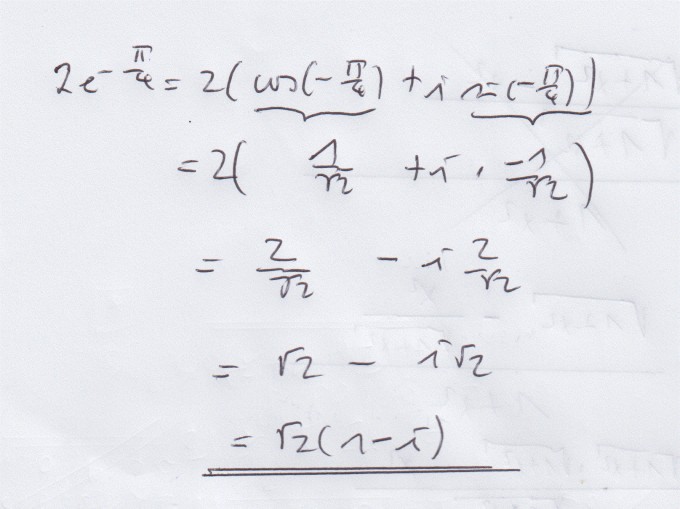 2e^{-\frac{π}{4}} = 2(cos(-\frac{π}{4}) + i sin(-\frac{π}{4}))
= 2( \frac{1}{√2} + i · \frac{-1}{√2})
= \frac{2}{√2} - i \frac{2}{√2}
= √2 - i√2
= √2(1-i)